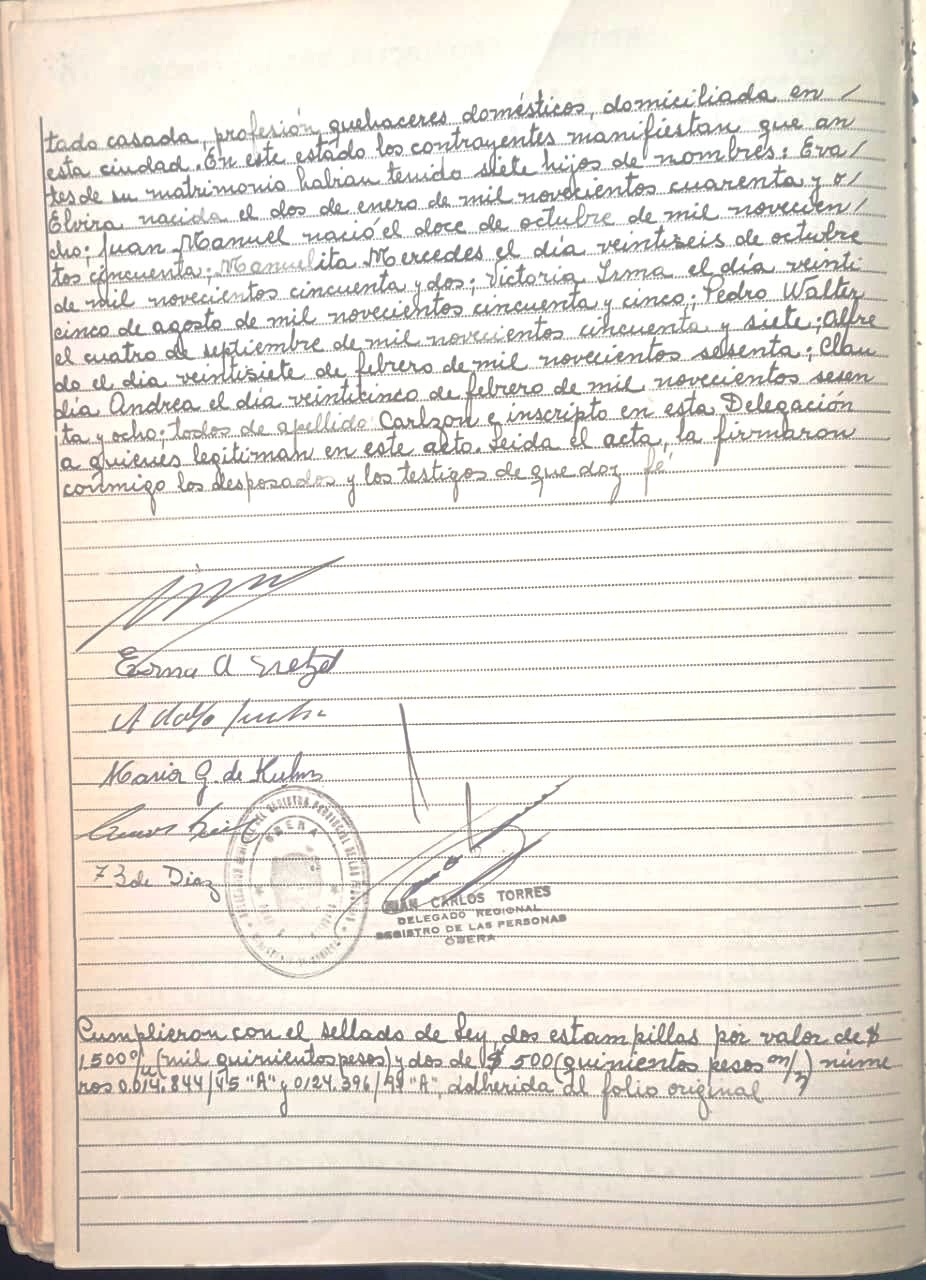 tado casada, profesión, quehaceres domésticos, domiciliada en /
esta ciudad. En este estado los contrayentes manifiestan que an
tes de su matrimonio habían tenido siete hijos de nombres: Eva /
Elvira nacida el dos de enero de mil novecientos cuarenta y o/
cho; Juan Manuel nació el doce de octubre de mil novecien/
tos cincuenta; Manuelita Mercedes el día veintiseis de octubre
de mil novecientos cincuenta y dos; Victoria Irma el día veinti
cinco de agosto de mil novecientos cincuenta y cinco; Pedro Walter
el cuatro de septiembre de mil novecientos cincuenta y siete; Alfre
do el día veintisiete de febrero de mil novecientos sesenta; Clau
dia Andrea el día veinticinco de febrero de mil novecientos sesen
ta y ocho; todos de apellido Carlzon e inscripto en esta Delegación
a quienes legitiman en este acto. Leida el acta, la firmaron
conmigo los desposados y los testigos de que doy fé
Erna A
Adolfo
Maria G. de Kuhn
de Diaz
OBERA
JUAN CARLOS TORRES
DELEGADO REGIONAL
REGISTRO DE LAS PERSONAS
OBERA
Cumplieron con el sellado de Ley, dos estampillas por valor de $
1.500 (mil quinientos pesos) y dos de $ 500 (quinientos pesos m/n) núme
ros 0.014.844/45 "A" y 0124.396/ "A", adherida al folio original